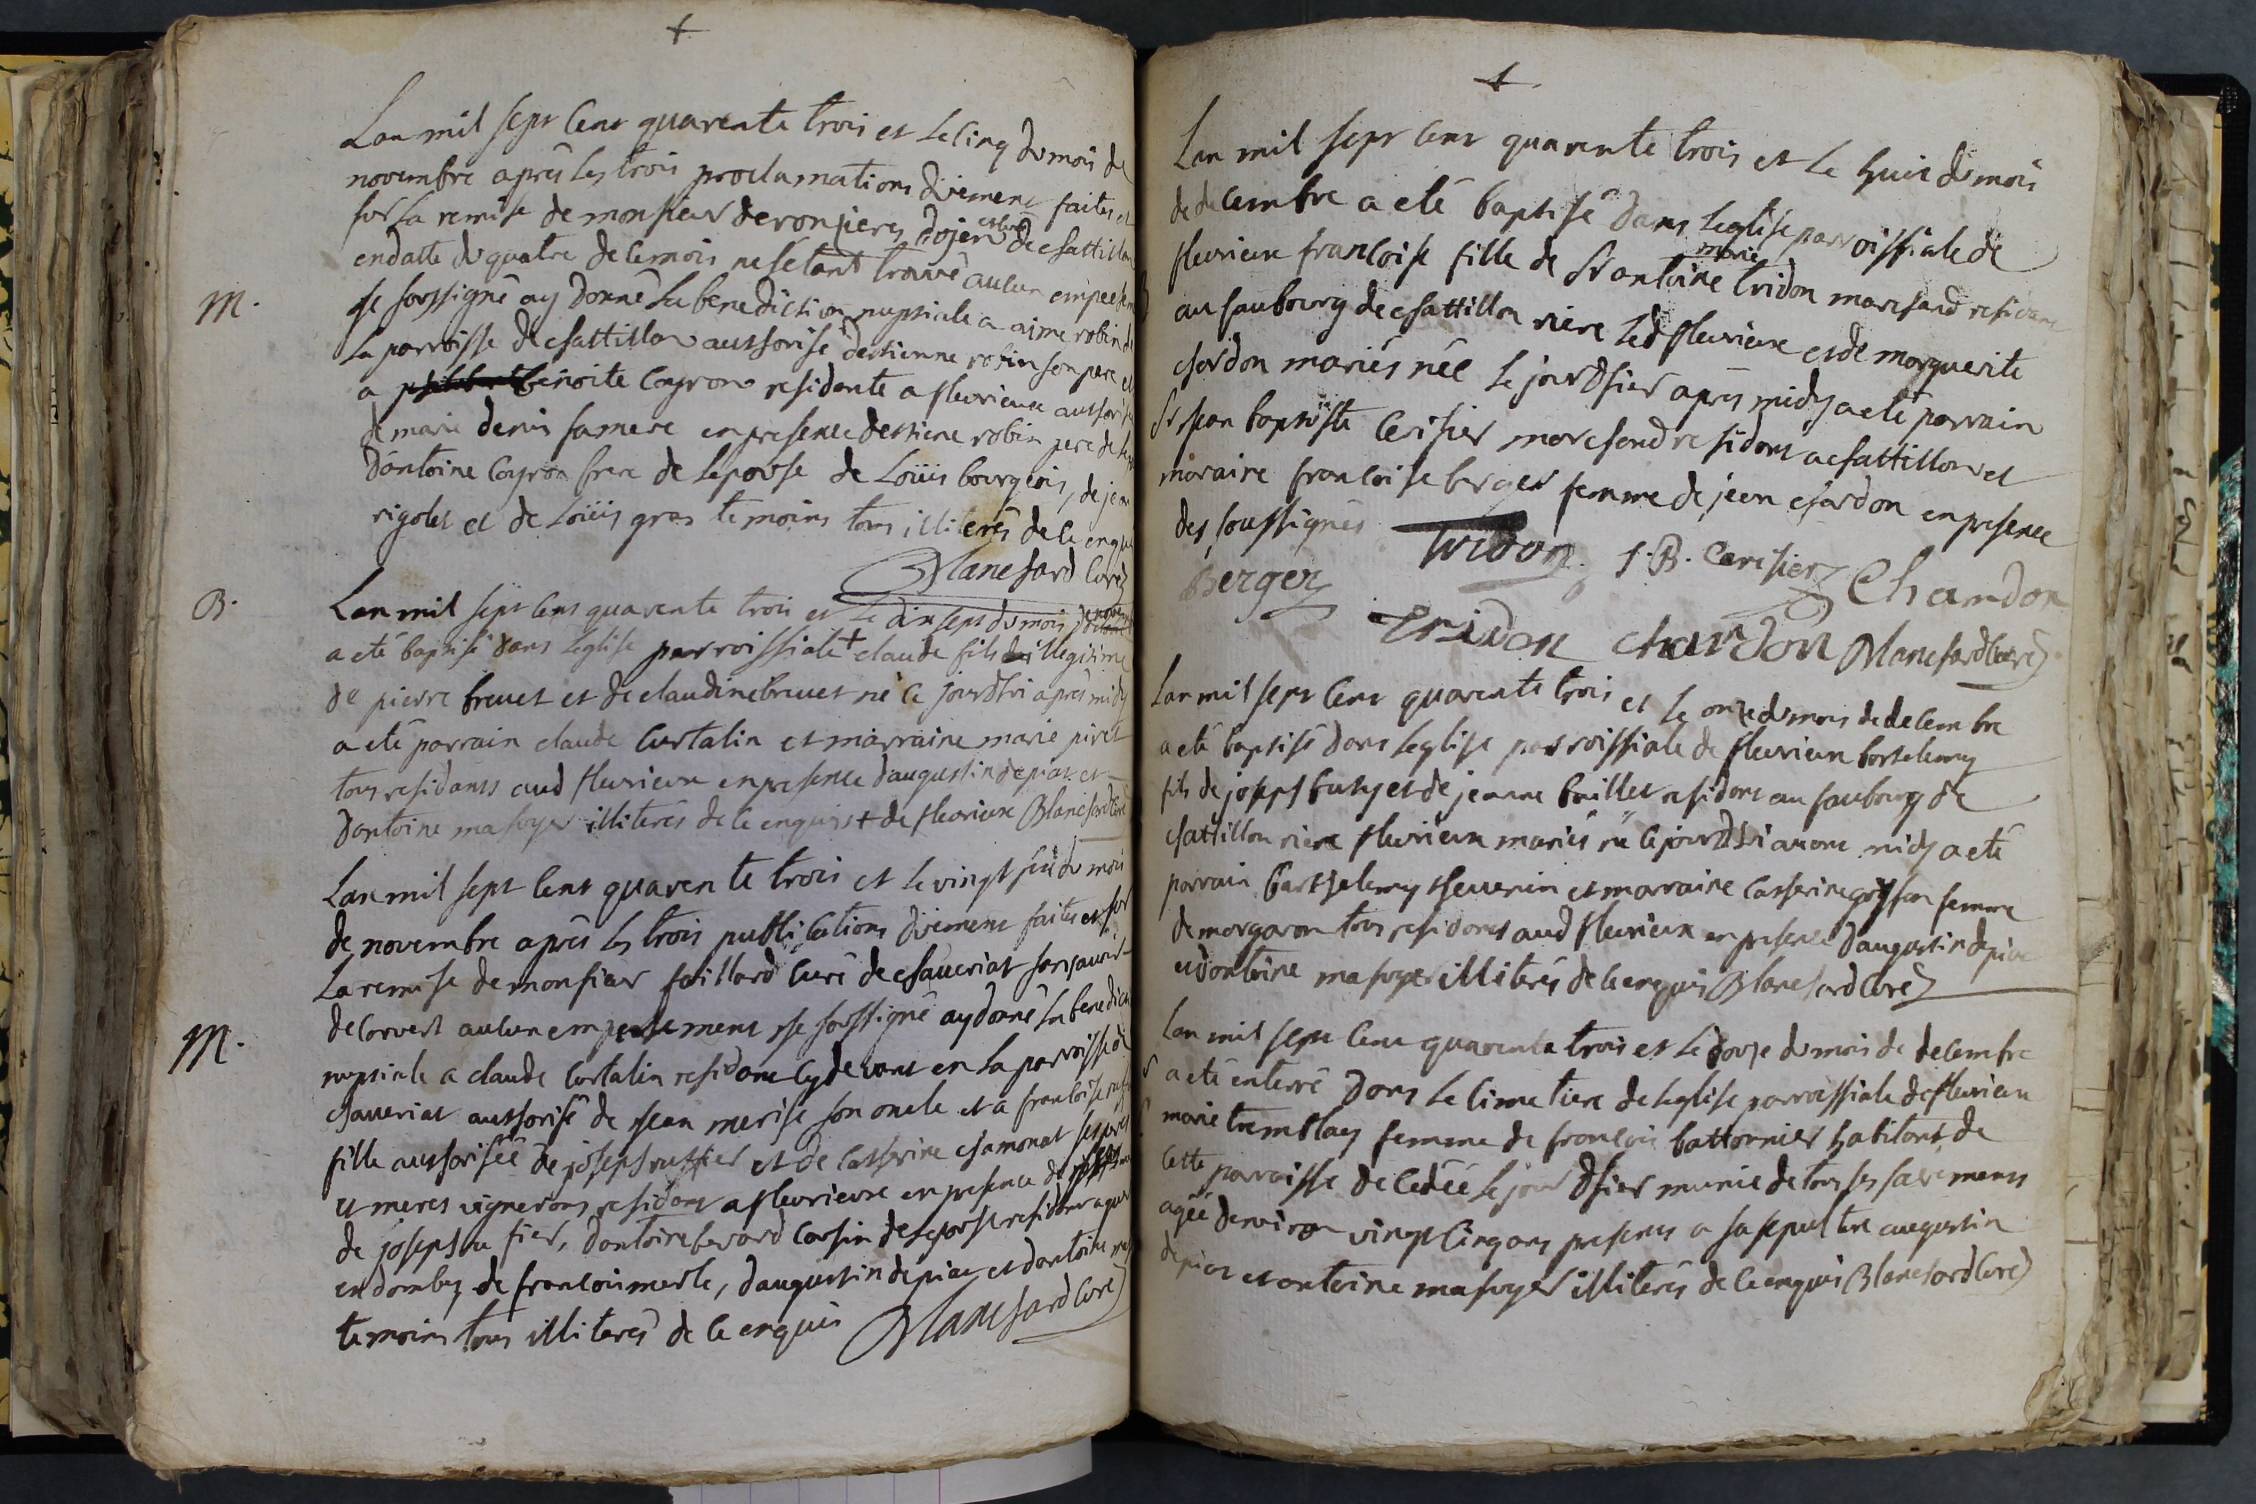 +
Lan mil sept cent quarente trois et le cinq du mois de
novembre aprés les trois proclamations düement faites et
sur la remise de monsieur deronzieres dojen et curé de chattillon
en datte du quatre de ce mois ne setant trouvé aucun empeche
Je soussigné ay donné la benediction nuptiale a aimé robin de
M.
la parroisse de chattillon authorisé destienne robin son pere et
a benoite Cayron residente a fleurieux authorisé
de marie denis sa mere en presence destiene robin pere de
dantoine Cayron frere de lepouse de Loüis bourgeois, de jean
rigolet et de Loüis gras temoins tous illiterés de ce enquis
Blanchard Curé
B.
Lan mil sept cent quarente trois et le dix sept du mois de novem
a eté baptisé dans leglise parroissiale + claude fils illegitime
de pierre brevet et de claudine brevet né ce jourdhui aprés midy
a eté parrain claude Curtalin et marraine marie pivet
tous residants aud fleurieux en presence daugustin depiat et
dantoine masuyer illiterés de ce enquis + de fleurieux Blanchard Curé
Lan mil sept cent quarente trois et le vingt six du mois
de novembre aprés les trois publications düement faites et sur
La remise de monsieur faillard Curé de chaveriat sans avoir
decouvert aucun empechement Je soussigné ay donné la benedict
M.
nuptiale a claude Curtalin residant cy devant en la parroisse de
chaveriat authorisé de Jean merise son oncle et a francoise ruf
fille authorisée de joseph ruffier et de catherine chamonat ses peres
et meres vignerons residant a fleurieux en presence de
de joseph rufier, dantoine bevard Cousin de lepouse residant a
en dombes de francois merle, daugustin depiat et dantoine mas
temoins tous illiterés de ce enquis Blanchard Curé
+
Lan mil sept cent quarente trois et le huit du mois
de decembre a eté baptisé dans leglise parroissiale de
fleurieux francoise fille de Sr antoine marie tridon marchand residant
au faubourg de chattillon riere led fleurieux et de marguerite
chardon mariés née le jour dhier aprés midy a eté parrain
Sr Jean baptiste Cerisier marchand residant a chattillon et
maraine francoise berger femme de jean chardon en presence
des soussignés Tridon J. B. Cerisier Chardon
Berger
Tridon chardon Blanchard Curé
Lan mil sept cent quarente trois et le onze du mois de decembre
a eté baptisé dans leglise parroissiale de fleurieux barthelemy
fils de joseph buthy et de jeanne baillet residant au faubourg de
chattillon riere fleurieux mariés né ce jourdhui avant midy a eté
parrain barthelemy thevenin et marraine Catherine femme
de margaron tous residants aud fleurieux en presence daugustin depiat
et dantoine masuyer illiterés de ce enquis Blanchard Curé
Lan mil sept cent quarente trois et le douze du mois de decembre
a eté enterré dans le cimetiere de leglise parroissiale de fleurieux
marie tremblay femme de francois battonnier habitant de
cette parroisse decedée le jour dhier munie de tous ses sacrements
agée denviron vingt cinq ans presents a sa sepulture augustin
depiat et antoine masuyer illiterés de ce enquis Blanchard Curé